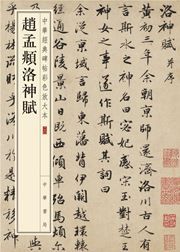 中華經典碑帖彩色放大本
趙孟頫洛神賦
中華書局
洛神賦 并序
黄初三年余朝京師還濟洛川古人有
言斯水之神名曰宓妃感宋玉對楚王
神女之事遂作斯賦其詞曰
言歸東藩背伊闕越轘轅
經通谷陵景山日既西傾車殆馬煩